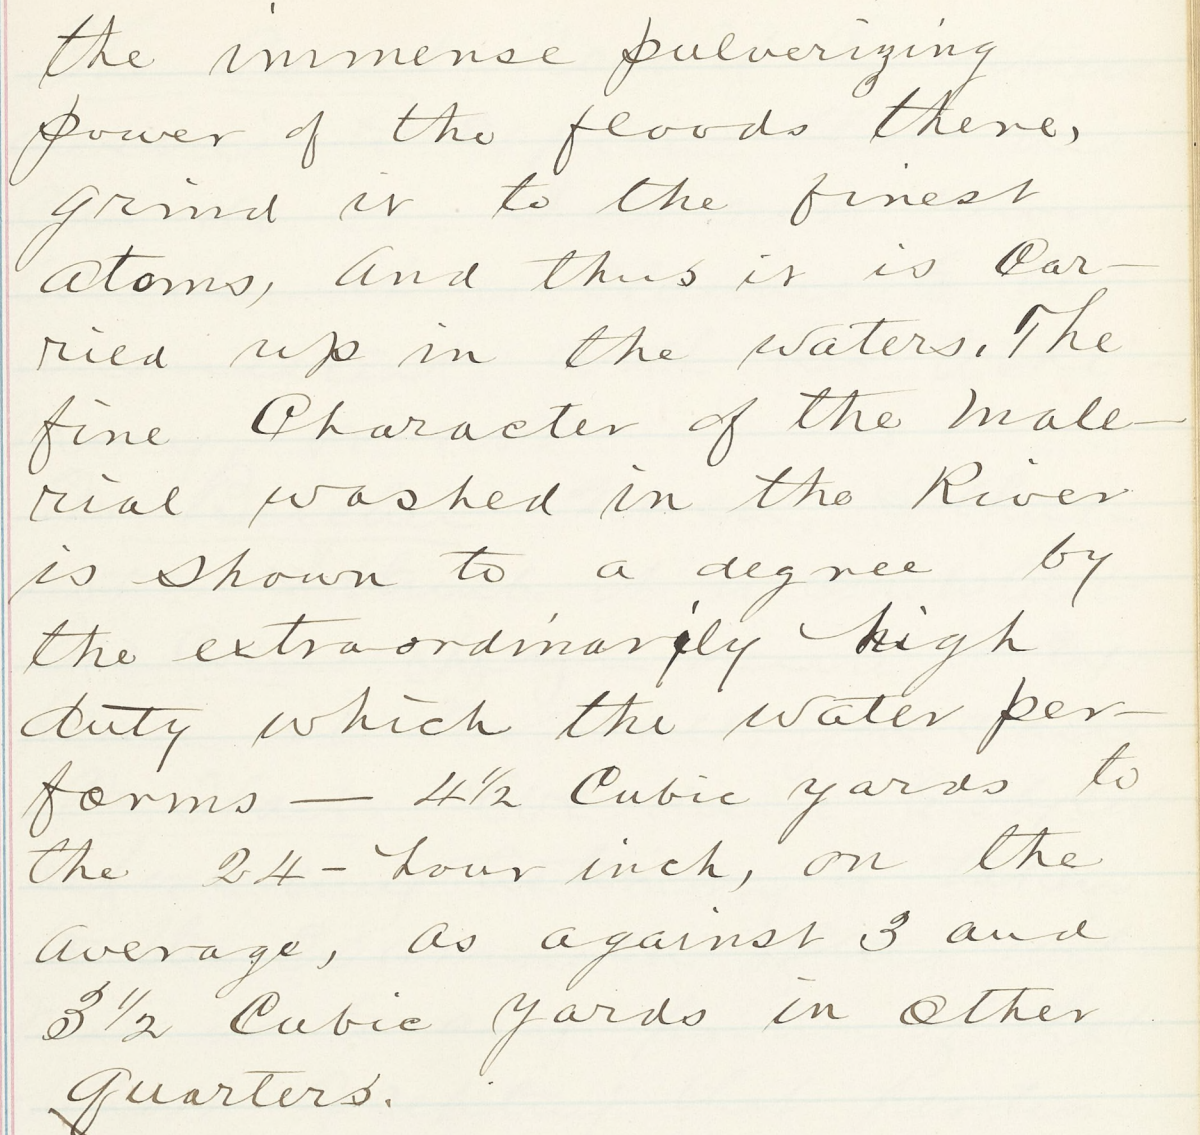 the immense pulverizing
power of the floods there,
grind it to the finest
atoms, and thus it is Car-
ried up in the waters. The
fine Character of the mate-
rial washed in the River
is shown to a degree by
the extraordinarily high
duty which the water per-
forms — 4½ Cubic yards to
the 24-hour inch, on the
average, as against 3 and
3½ Cubic yards in other
quarters.